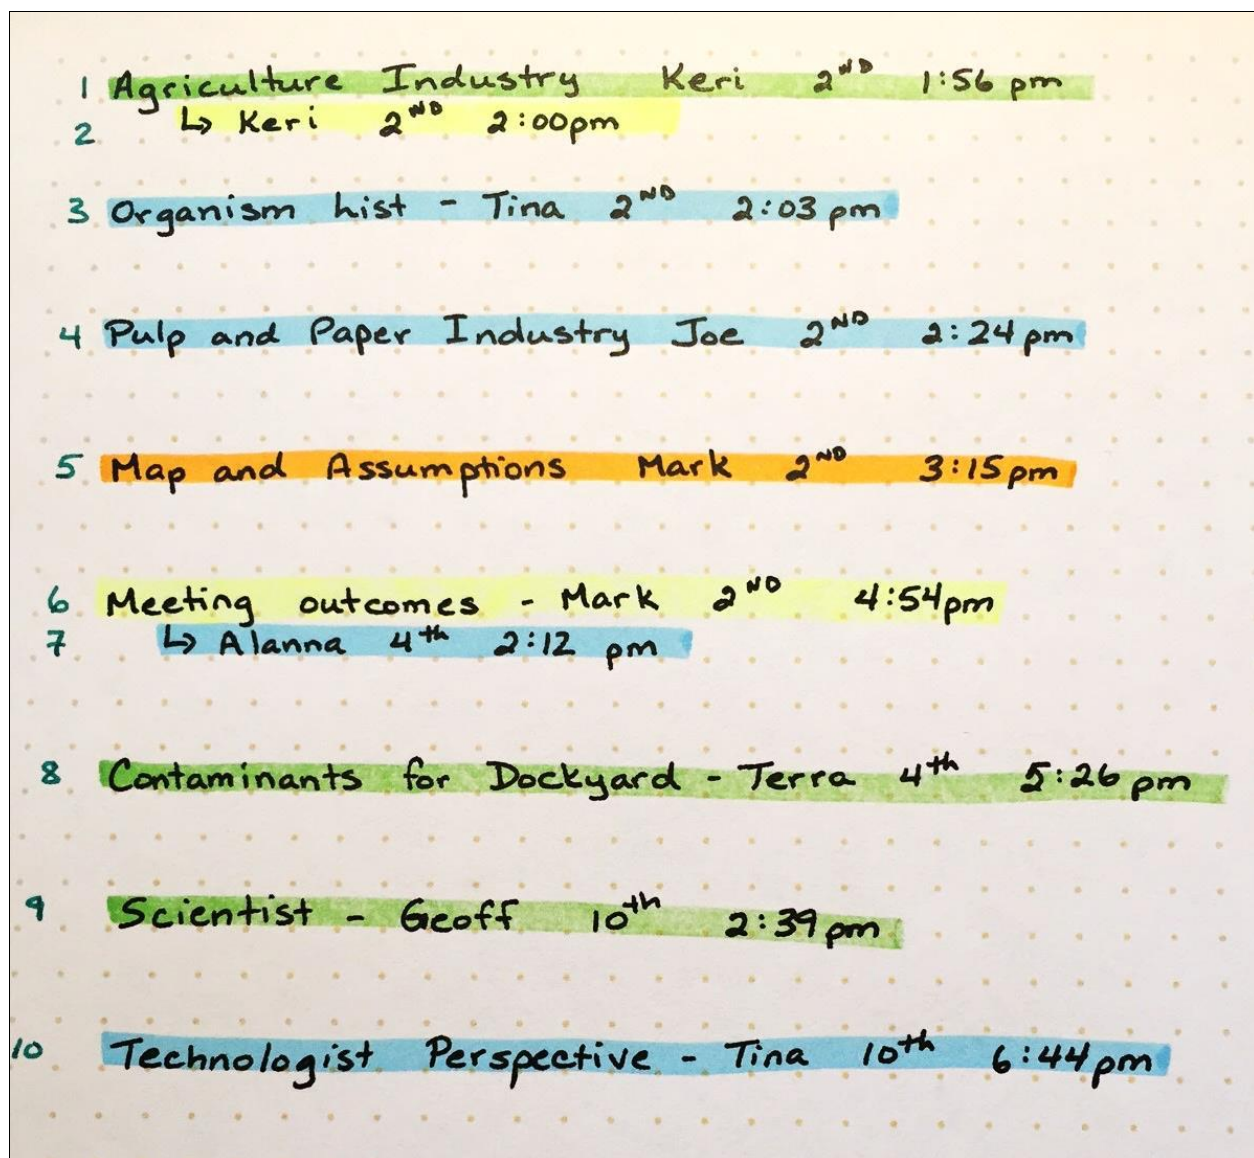 1 Agriculture Industry Keri 2ND 1:56 pm
2 ↳ Keri 2ND 2:00pm
3 Organism hist - Tina 2ND 2:03 pm
4 Pulp and Paper Industry Joe 2ND 2:24 pm
5 Map and Assumptions Mark 2ND 3:15 pm
6 Meeting outcomes - Mark 2ND 4:54pm
7 ↳ Alanna 4th 2:12 pm
8 Contaminants for Dockyard - Terra 4th 5:26 pm
9 Scientist - Geoff 10th 2:39 pm
10 Technologist Perspective - Tina 10th 6:44pm